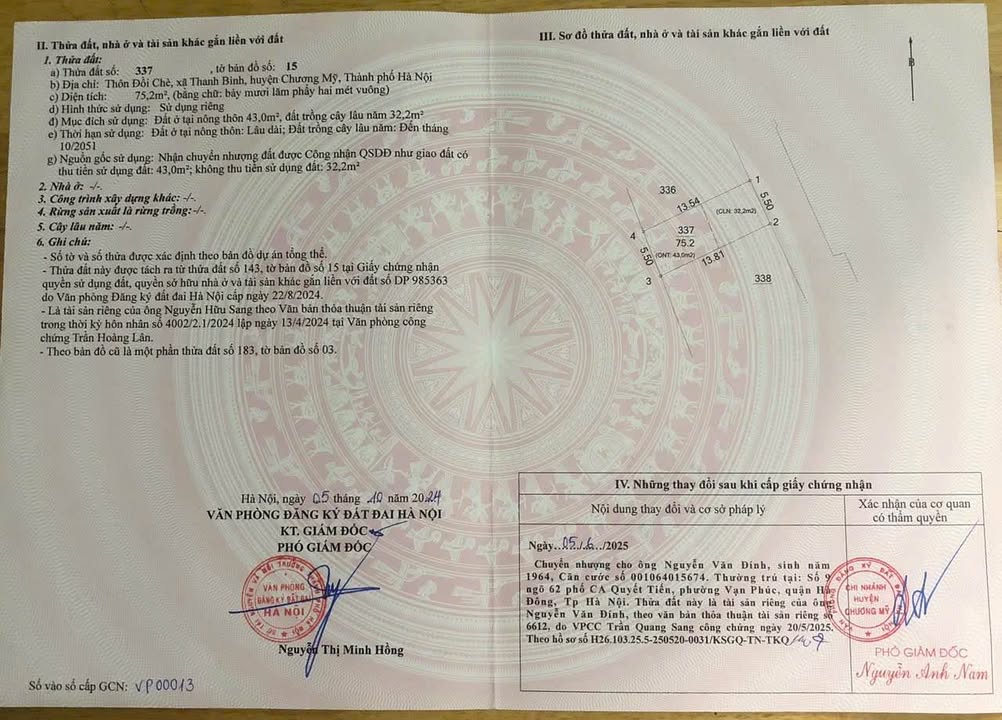 II. Thửa đất, nhà ở và tài sản khác gắn liền với đất
1. Thửa đất:
a) Thửa đất số: 337 , tờ bản đồ số: 15
b) Địa chỉ: Thôn Đồi Chè, xã Thanh Bình, huyện Chương Mỹ, Thành phố Hà Nội
c) Diện tích 75,2m², (bằng chữ: bảy mươi lăm phẩy hai mét vuông)
d) Hình thức sử dụng: Sử dụng riêng
đ) Mục đích sử dụng: Đất ở tại nông thôn 43,0m², đất trồng cây lâu năm 32,2m²
e) Thời hạn sử dụng: Đất ở tại nông thôn: Lâu dài; Đất trồng cây lâu năm: Đến tháng
10/2051
g) Nguồn gốc sử dụng: Nhận chuyển nhượng đất được Công nhận QSDĐ như giao đất có
thu tiền sử dụng đất: 43,0m²; không thu tiền sử dụng đất: 32,2m²
2. Nhà ở: -/-.
3. Công trình xây dựng khác: -/-.
4. Rừng sản xuất là rừng trồng:-/-.
5. Cây lâu năm: -/-.
6. Ghi chú:
- Số tờ và số thửa được xác định theo bản đồ dự án tổng thể.
- Thửa đất này được tách ra từ thửa đất số 143, tờ bản đồ số 15 tại Giấy chứng nhận
quyền sử dụng đất, quyền sở hữu nhà ở và tài sản khác gắn liền với đất số DP 985363
do Văn phòng Đăng ký đất đai Hà Nội cấp ngày 22/8/2024.
- Là tài sản riêng của ông Nguyễn Hữu Sang theo Văn bản thỏa thuận tài sản riêng
trong thời kỳ hôn nhân số 4002/2.1/2024 lập ngày 13/4/2024 tại Văn phòng công
chứng Trần Hoàng Lân.
- Theo bản đồ cũ là một phần thửa đất số 183, tờ bản đồ số 03.
Hà Nội, ngày 05 tháng 10 năm 2024
VĂN PHÒNG ĐĂNG KÝ ĐẤT ĐAI HÀ NỘI
KT. GIÁM ĐỐC
PHÓ GIÁM ĐỐC
VĂN PHÒNG
ĐĂNG KÝ ĐẤT ĐAI
HÀ NỘI
Nguyễn Thị Minh Hồng
Số vào sổ cấp GCN: VP00013
III. Sơ đồ thửa đất, nhà ở và tài sản khác gắn liền với đất
B
336
1
13.54
(CLN: 32,2m2)
5.50
2
4
337
75.2
(ONT: 43,0m2)
5.50
13.81
3
338
IV. Những thay đổi sau khi cấp giấy chứng nhận
Nội dung thay đổi và cơ sở pháp lý
Xác nhận của cơ quan
có thẩm quyền
Ngày..05../..6.../2025
Chuyển nhượng cho ông Nguyễn Văn Dính, sinh năm
1964, Căn cước số 001064015674. Thường trú tại: Số 9
ngõ 62 phố CA Quyết Tiến, phường Vạn Phúc, quận Hà
Đông, Tp Hà Nội. Thửa đất này là tài sản riêng của ông
Nguyễn Văn Dính, theo văn bản thỏa thuận tài sản riêng số
6612, do VPCC Trần Quang Sang công chứng ngày 20/5/2025.
Theo hồ sơ số H26.103.25.5-250520-0031/KSGQ-TN-TKQ
CHI NHÁNH
HUYỆN
CHƯƠNG MỸ
PHÓ GIÁM ĐỐC
Nguyễn Anh Nam